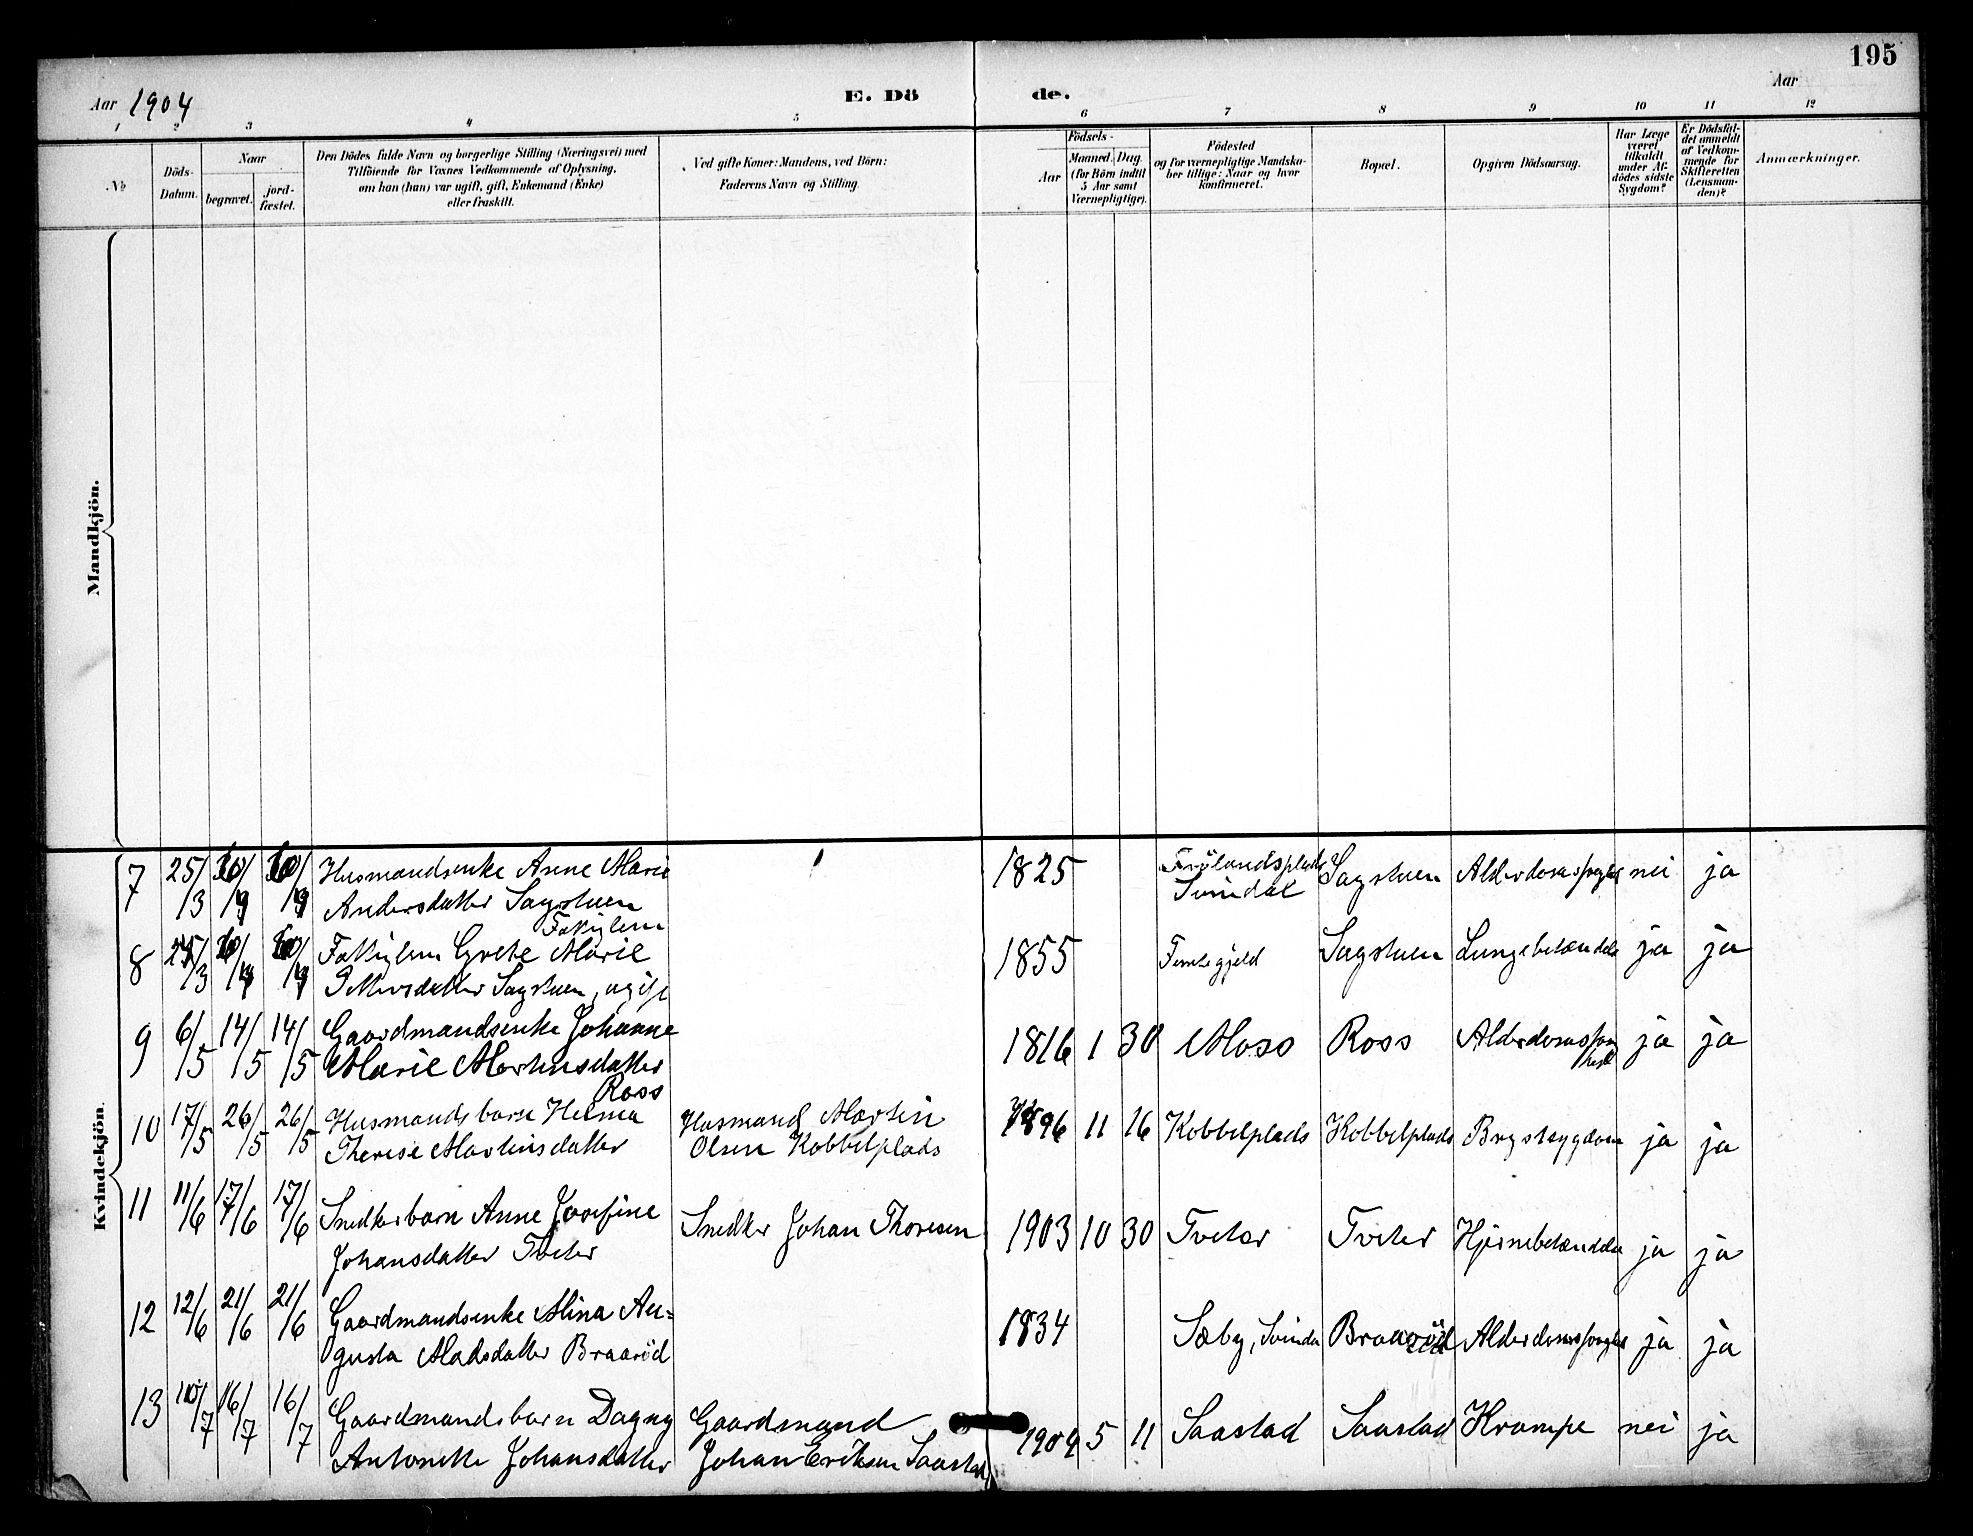 195
Aar 1904
E. Dö
de.
Aar
1 2 3 4 5 6 7 8 9 10 11 12
№
Döds-
Datum.
Naar
begravet.
jord-
fæstet.
Den Dödes fulde Navn og borgerlige Stilling (Næringsvei) med
Tilföiende for Voxnes Vedkommende af Oplysning,
om han (hun) var ugift, gift, Enkemand (Enke)
eller fraskilt.
Ved gifte Koner: Mandens, ved Börn:
Faderens Navn og Stilling.
Födsels-
Aar
Maaned. Dag.
(for Börn indtil
5 Aar samt
Værnepligtige).
Födested
og for værnepligtige Mandska-
ber tillige: Naar og hvor
konfirmeret.
Bopæl.
Opgiven Dödsaarsag.
Har Læge
været
tilkaldt
under Af-
dödes sidste
Sygdom?
Er Dödsfal-
det anmeldt
af Vedkom-
mende for
Skifteretten
(Lensman-
den)?
Anmærkninger.
Mandkjön.
Kvindekjön.
7 25/3 Husmandsenke Anne Marie 1825 Frölandsplads Sagstuen Alderdomssvaghed nei ja
Andersdatter Sagstuen Svindal
8 Grethe Marie 1855 Sagstuen Lungebetændelse ja ja
Pettersdatter Sagstuen, ugift
9 6/5 14/5 14/5 Gaardmandsenke Johanne 1816 1 30 Moss Ross Alderdomssvag ja ja
Marie Martinsdatter hed
Ross
10 17/5 26/5 26/5 Husmandsbarn Helma Husmand Martin 1896 11 16 Kobbelplads Kobbelplads Brystsygdom ja ja
Therese Martinsdatter Olsen Kobbelplads
11 11/6 17/6 17/6 Snedkerbarn Anne Josefine Snedker Johan Thoresen 1903 10 30 Tveter Tveter Hjernebetændelse ja ja
Johansdatter Tveter
12 12/6 21/6 21/6 Gaardmandsenke Mina Au= 1834 Sæby, Svinda Braaröd Alderdomssvaghed ja ja
gusta Madsdatter Braaröd
13 10/7 16/7 16/7 Gaardmandsbarn Dagny Gaardmand 1904 5 11 Saastad Saastad Krampe nei ja
Antonette Johansdatter Johan Eriksen Saastad